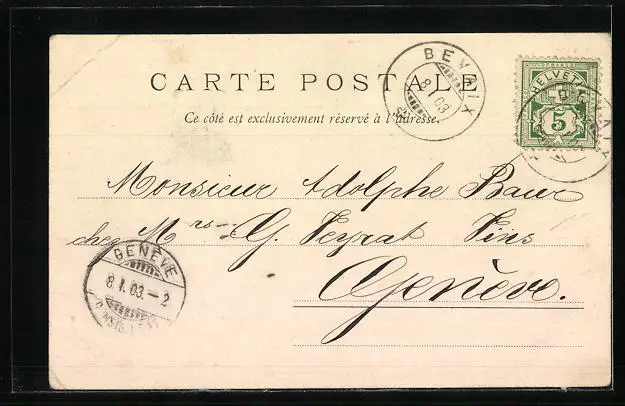 CARTE POSTALE
Ce côté est exclusivement réservé à l'adresse.
BEVAIX
8.I.03
FRANCO
HELVETIA
5
Monsieur Adolphe Baur
chez Mrs G. Veyrat Vins
Genève.
GENÈVE
8.I.03.–2